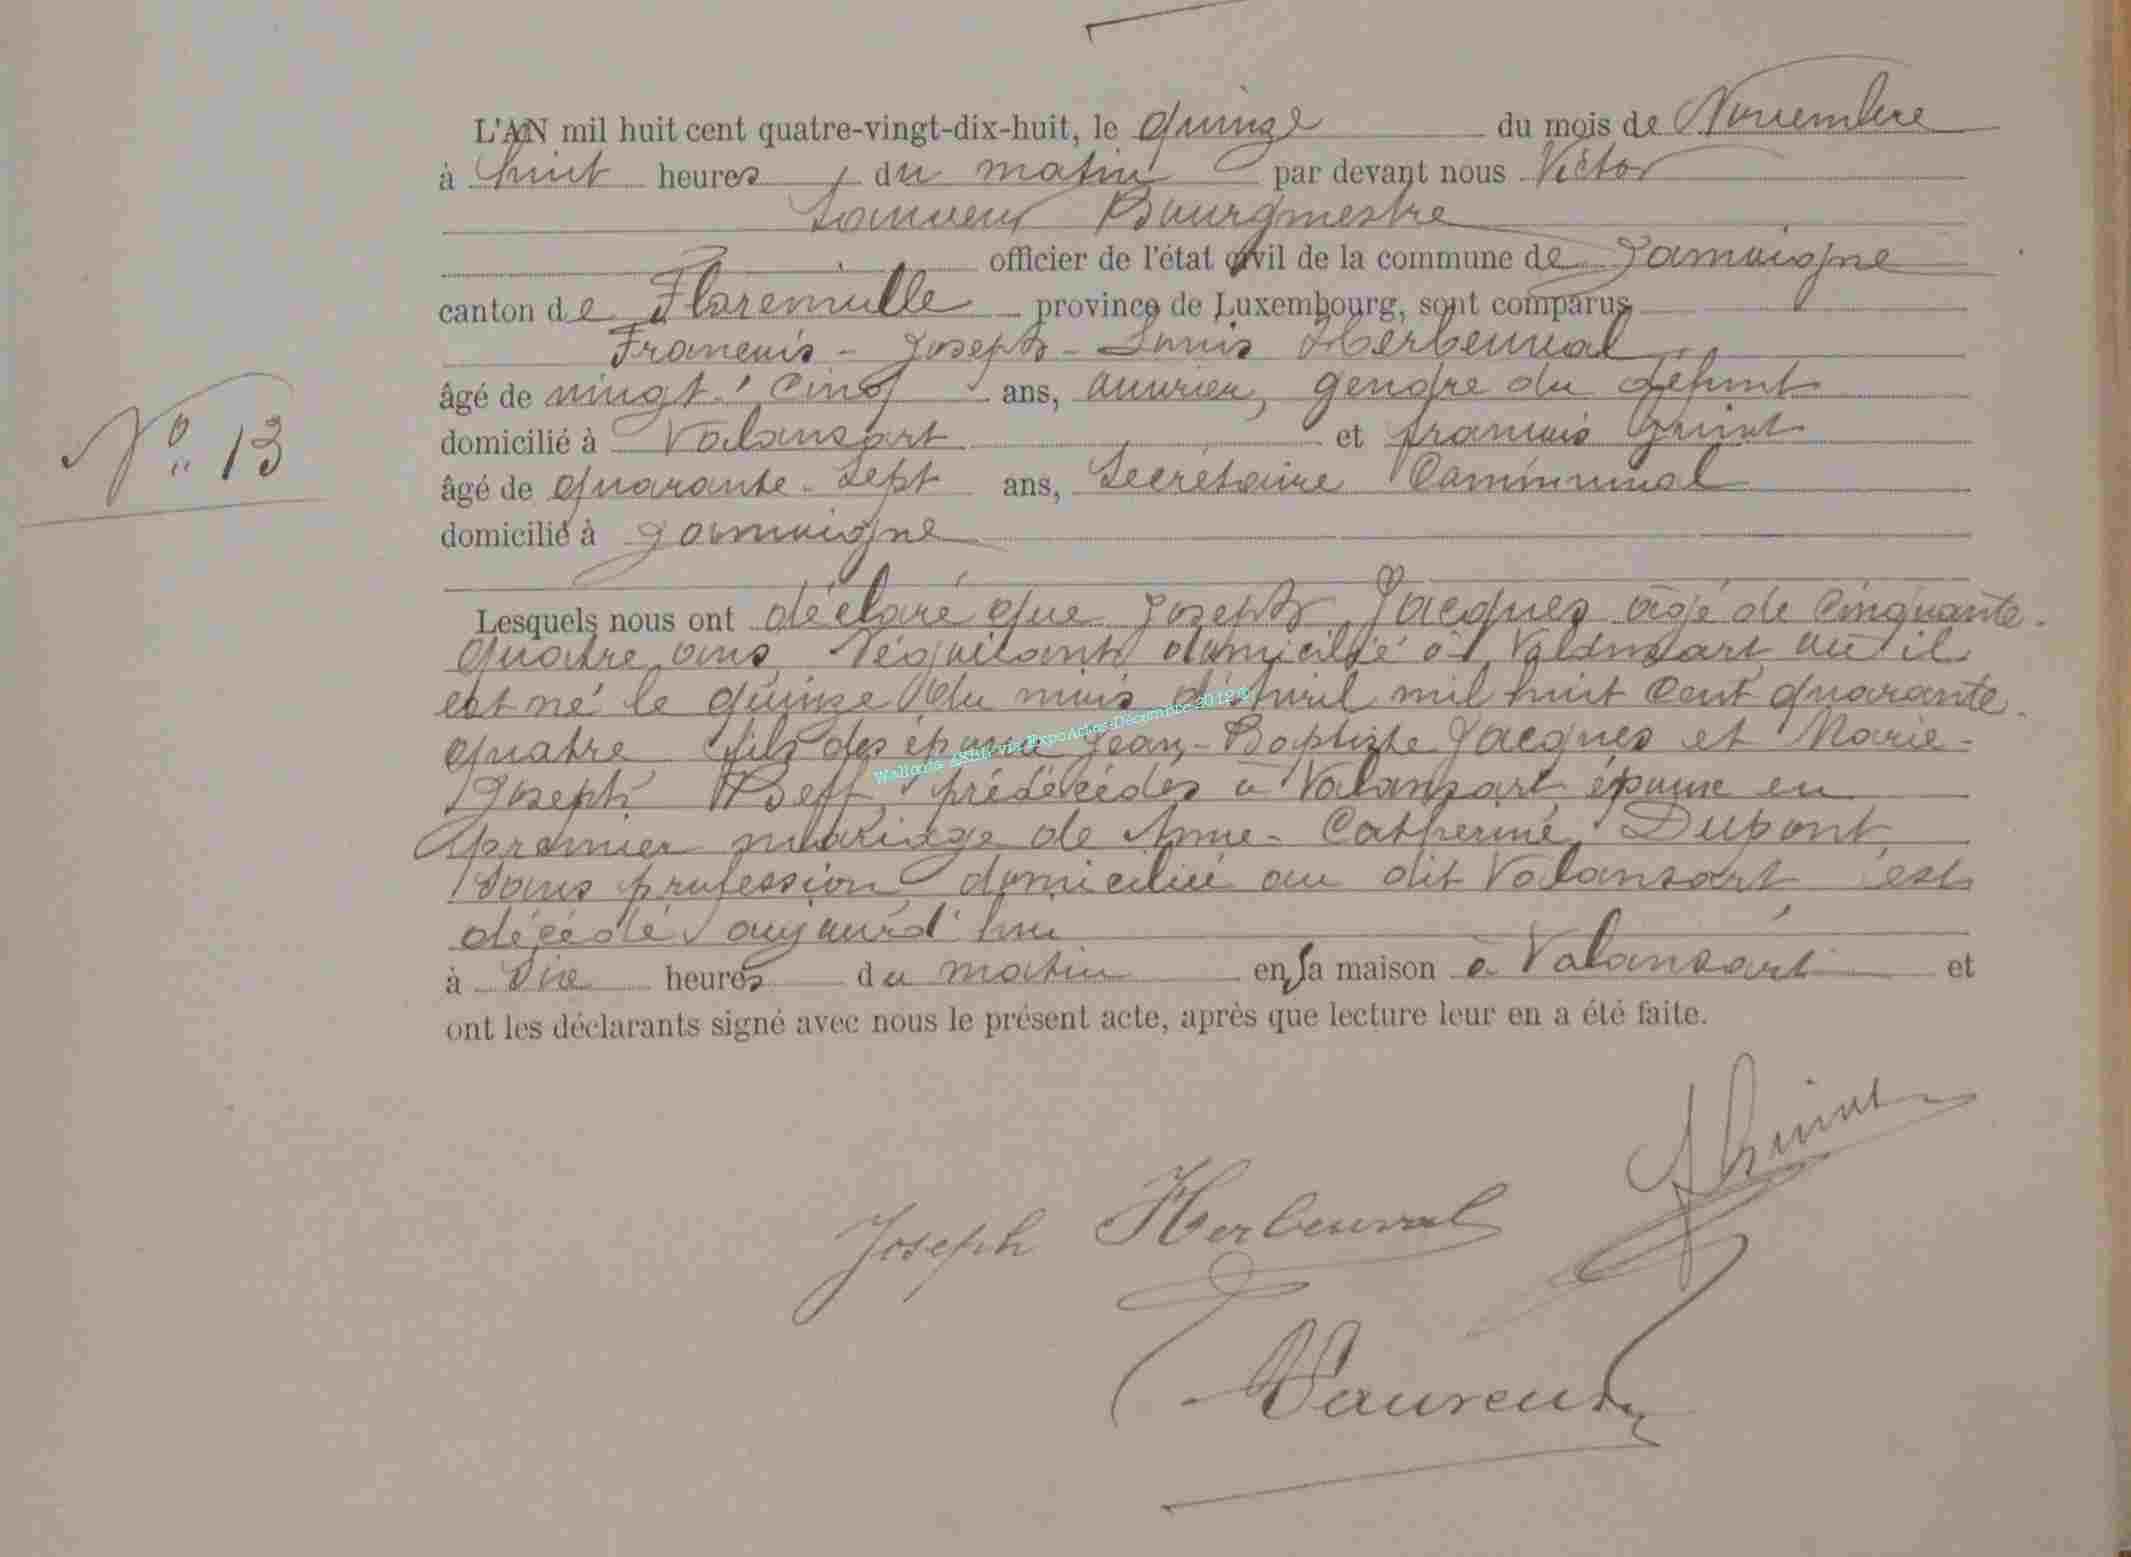 L'AN mil huit cent quatre-vingt-dix-huit, le quinze du mois de Novembre
à huit heures du matin par devant nous Victor
Bourgmestre
officier de l'état civil de la commune de Jamoigne
canton de Florenville province de Luxembourg, sont comparus
François - Joseph - Louis Herbeuval
âgé de vingt-cinq ans, ouvrier, gendre du défunt
N° 13
domicilié à Valansart et françois
âgé de quarante-sept ans, Secrétaire Communal
domicilié à Jamoigne
Lesquels nous ont déclaré que Joseph Jacques âgé de Cinquante-
quatre ans, domicilié à Valansart où il
est né le quinze du mois d'avril mil huit Cent quarante-
quatre fils des époux Jean-Baptiste Jacques et Marie-
Joseph prédécédés à Valansart époux en
premier mariage de Anne-Catherine Dupont
sans profession domiciliée au dit Valansart est
décédé aujourd'hui
à heures du matin en sa maison à Valansart et
ont les déclarants signé avec nous le présent acte, après que lecture leur en a été faite.
Wallonia ASBL via ExpoActes-Décembre 2012©
Joseph Herbeuval